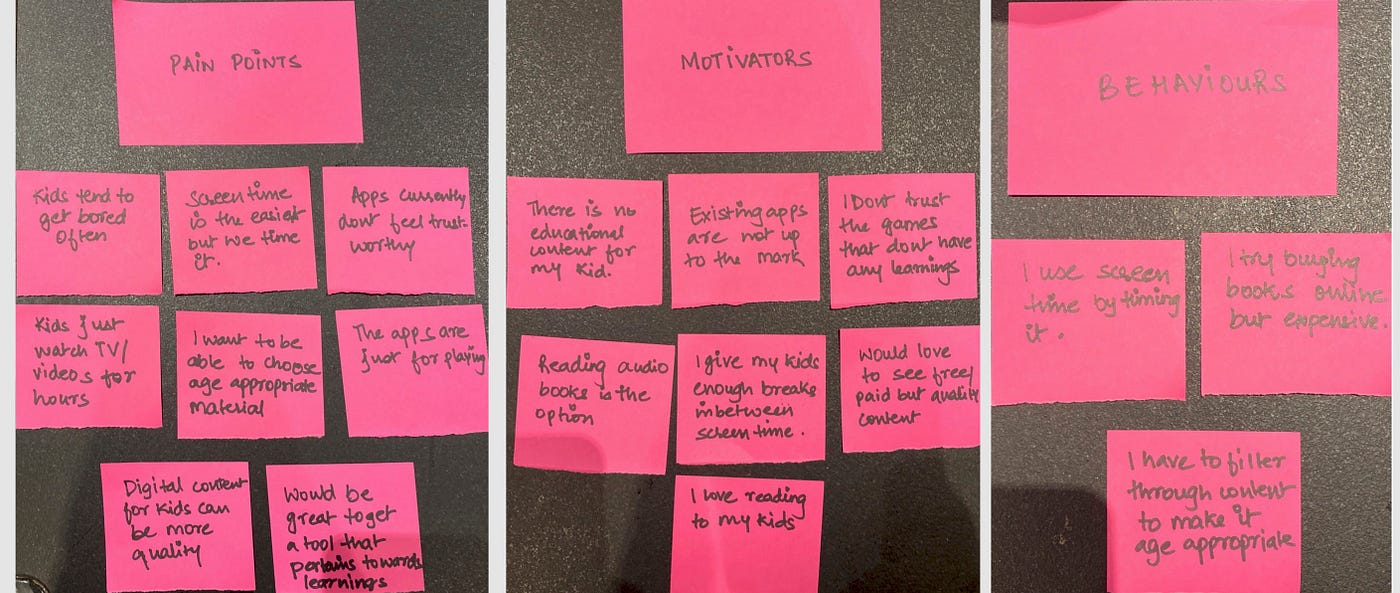 PAIN POINTS
Kids tend to
get bored
often
Screen time
is the easiest
but we time
it.
Apps currently
dont feel trust-
worthy
Kids just
watch TV/
videos for
hours
I want to be
able to choose
age appropriate
material
The apps are
just for playing
Digital content
for kids can
be more
quality
Would be
great to get
a tool that
pertains towards
learnings
MOTIVATORS
There is no
educational
content for
my kid.
Existing apps
are not up
to the mark
I Dont trust
the games
that dont have
any learnings
Reading audio
books is the
option
I give my kids
enough breaks
inbetween
screen time.
Would love
to see free/
paid but quality
content
I love reading
to my kids
BEHAVIOURS
I use screen
time by timing
it.
I try buying
books online
but expensive.
I have to filter
through content
to make it
age appropriate